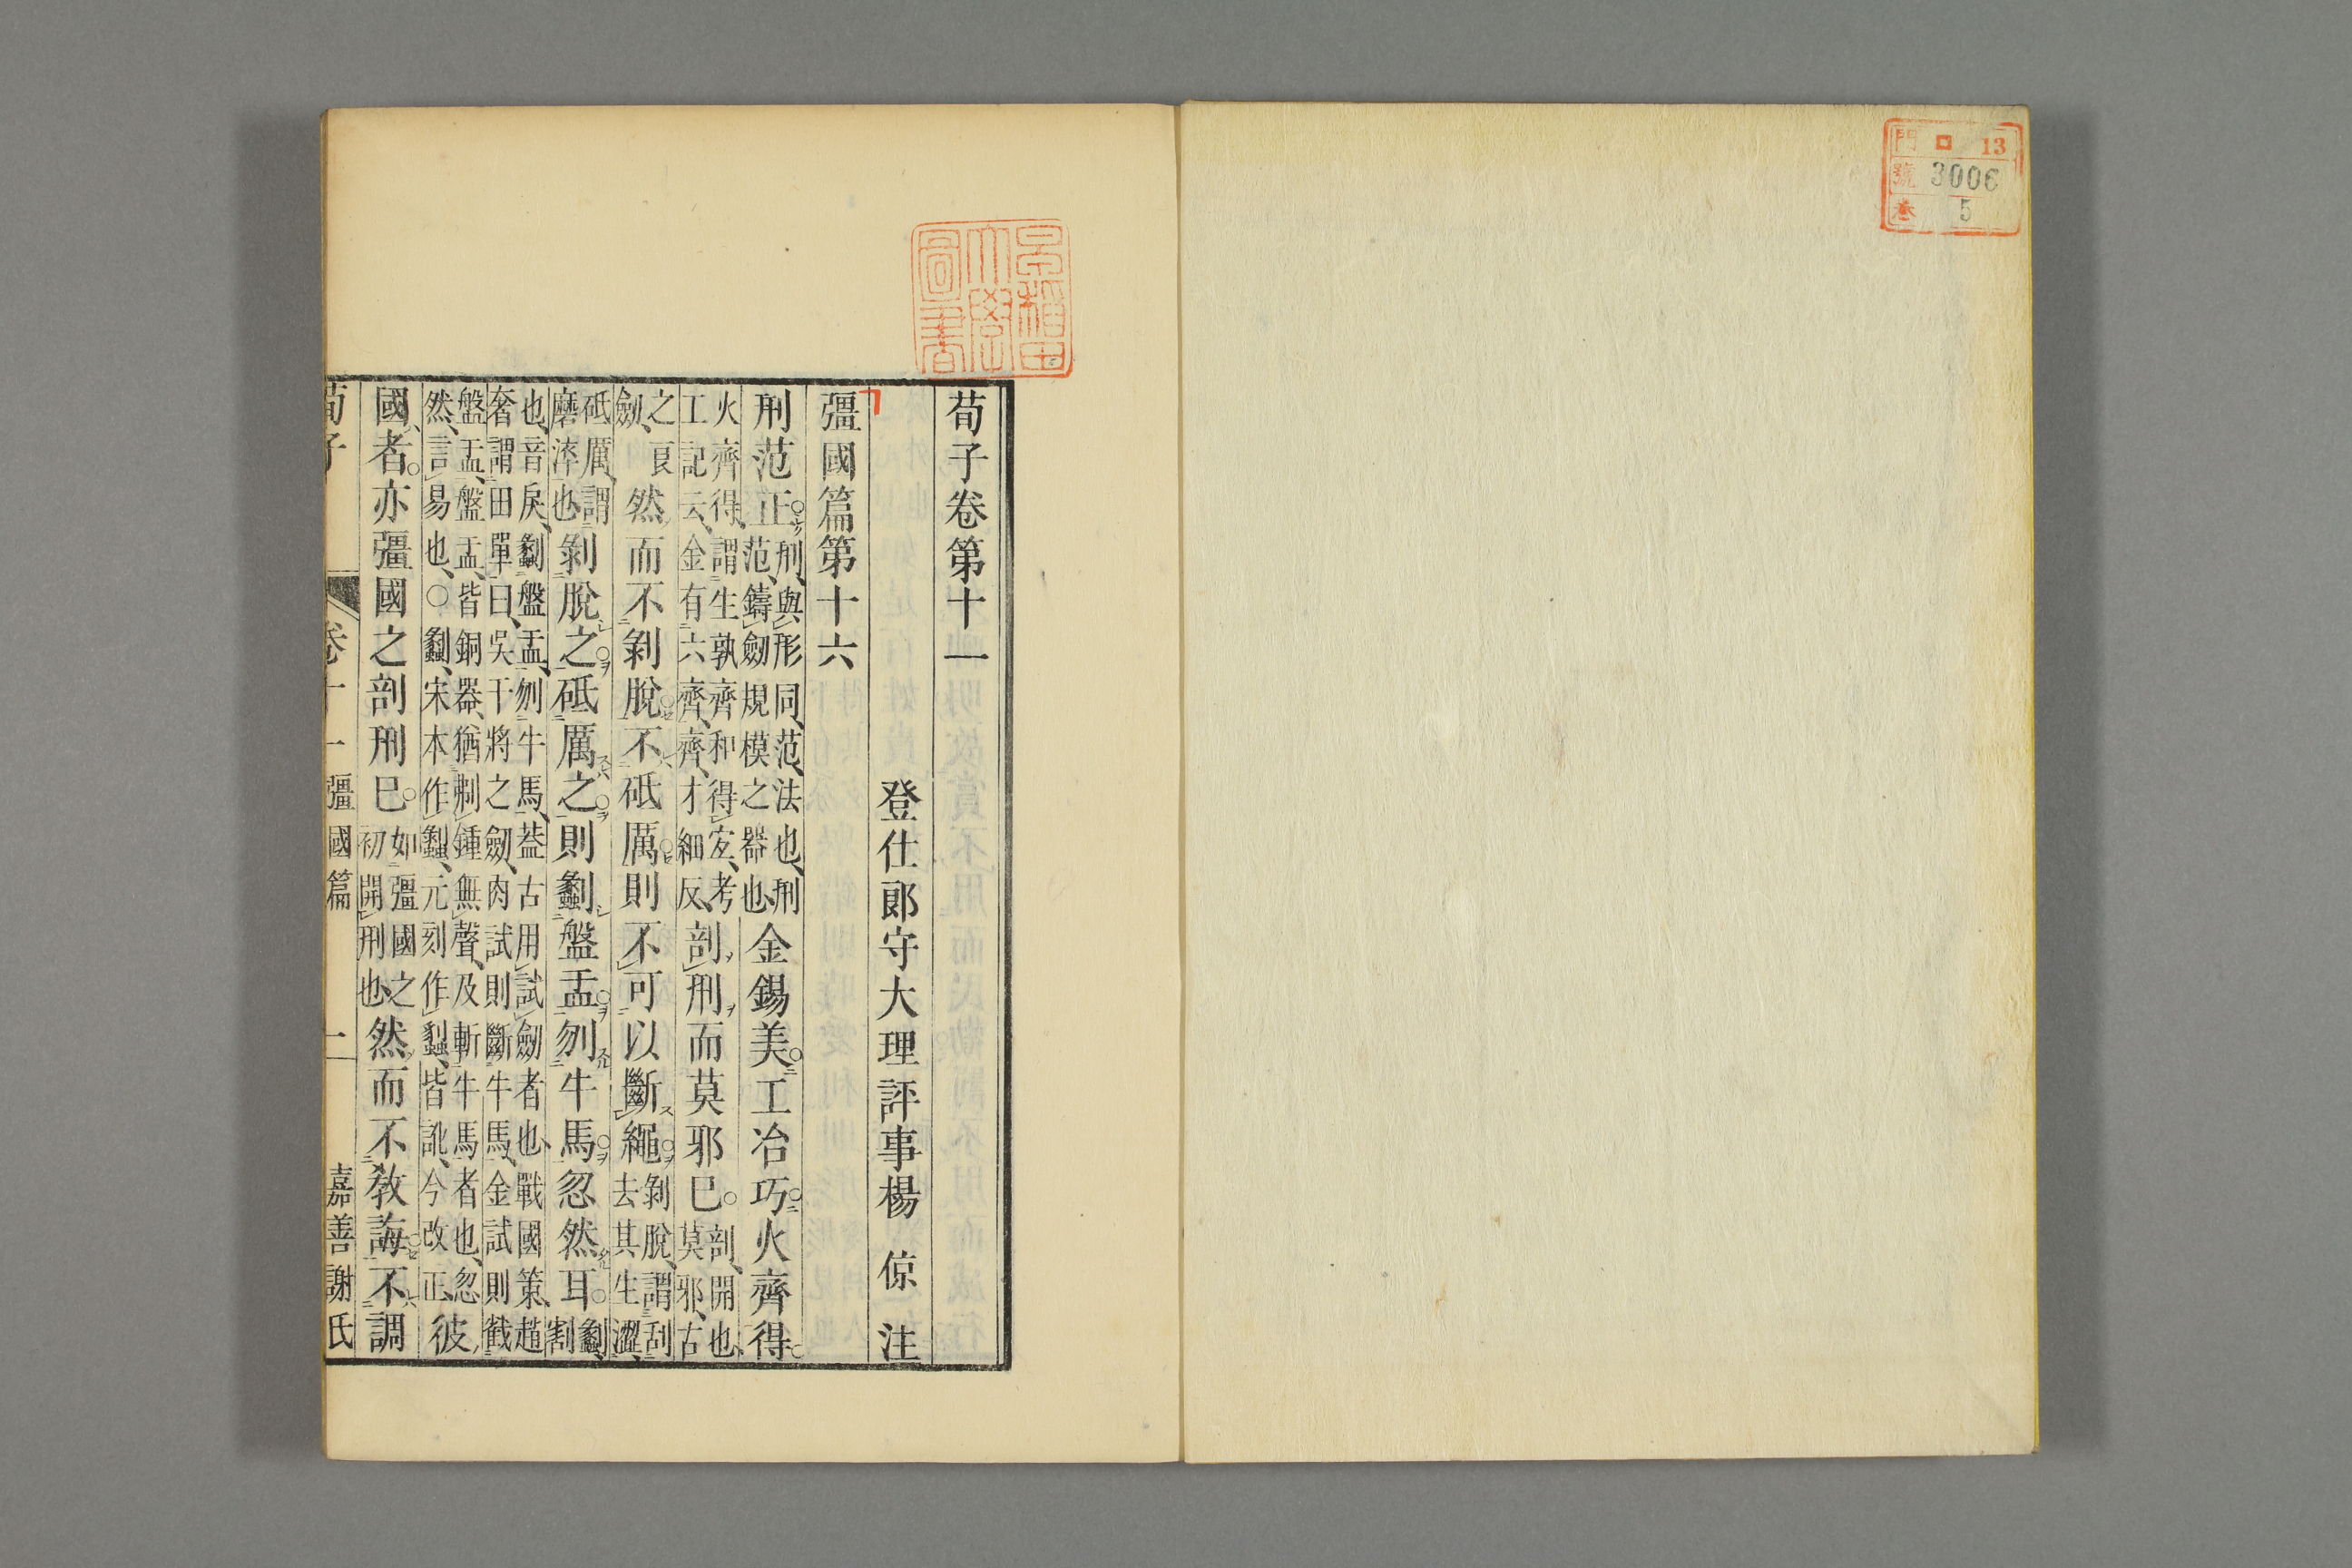 門 ロ 13
號 3006
卷 5
早稻田
大學
圖書
荀子卷第十一
登仕郎守大理評事楊 倞 注
彊國篇第十六
刑范正。刑、與形同、范、法也、刑范、鑄劒規模之器也、金錫美。工冶巧。火齊得。
火齊得、謂生孰齊和得宐、考工記云、金有六齊、齊、才細反、剖刑而莫邪已。剖、開也、莫邪、古
之良劒、然而不剝脫。不砥厲。則不可以斷繩。剝脫、謂刮去其生澀、
砥厲、謂磨淬也、剝脫之。砥厲之。則劙盤盂。刎牛馬。忽然耳。劙、割
也、音戾、劙盤盂、刎牛馬、葢古用試劒者也、戰國策、趙奢謂田單曰、吳干將之劒、肉試則斷牛馬、金試則截
盤盂、盤盂、皆銅器、猶剸鍾無聲、及斬牛馬者也、忽然、言易也、○劙、宋本作䥥、元刻作蠡、皆訛、今改正、彼
國者。亦彊國之剖刑已。如彊國之初開刑也、然而不敎誨。不調
荀子 卷十一 彊國篇 一 嘉善謝氏